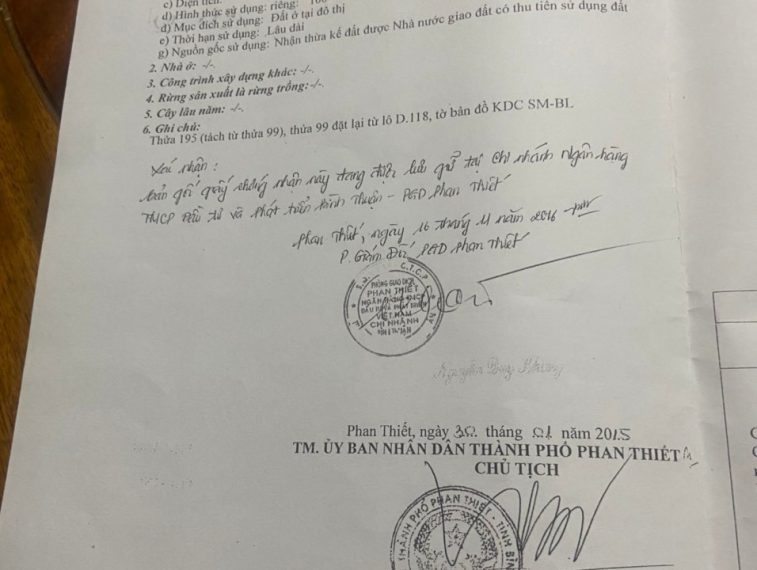 c) Diện tích:
d) Hình thức sử dụng: riêng:
đ) Mục đích sử dụng: Đất ở tại đô thị
e) Thời hạn sử dụng: Lâu dài
g) Nguồn gốc sử dụng: Nhận thừa kế đất được Nhà nước giao đất có thu tiền sử dụng đất
2. Nhà ở: -/-.
3. Công trình xây dựng khác: -/-.
4. Rừng sản xuất là rừng trồng: -/-.
5. Cây lâu năm: -/-.
6. Ghi chú:
Thửa 195 (tách từ thửa 99), thửa 99 đặt lại từ lô D.118, tờ bản đồ KDC SM-BL
Xác nhận :
Bản gốc giấy chứng nhận này đang được lưu giữ tại Chi nhánh Ngân hàng
TMCP Đầu tư và Phát triển Bình Thuận - PGD Phan Thiết
Phan Thiết, ngày 16 tháng 11 năm 2016
P. Giám Đốc PGD Phan Thiết
PHÒNG GIAO DỊCH
PHAN THIẾT
NGÂN HÀNG TMCP
ĐẦU TƯ VÀ PHÁT TRIỂN
VIỆT NAM
CHI NHÁNH
BÌNH THUẬN
Phan Thiết, ngày 30 tháng 01 năm 2015
TM. ỦY BAN NHÂN DÂN THÀNH PHỐ PHAN THIẾT
CHỦ TỊCH
THÀNH PHỐ PHAN THIẾT - TỈNH